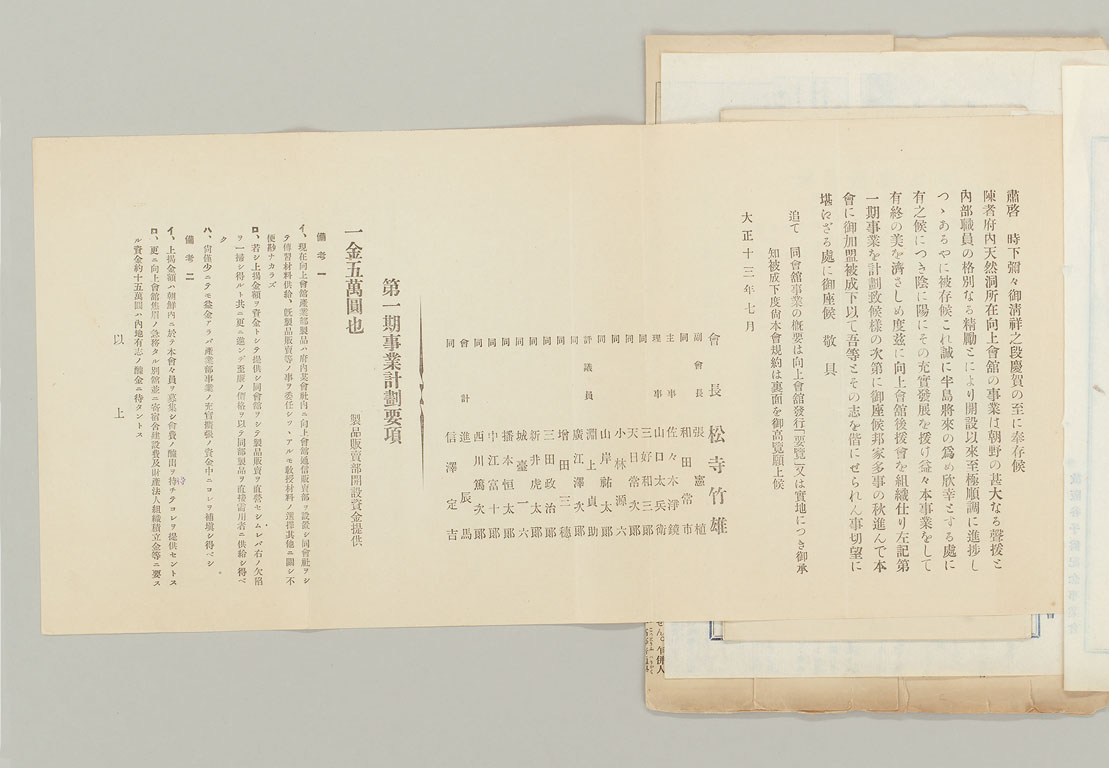 肅啓　時下彌々御淸祥之段慶賀の至に奉存候
陳者府內天然洞所在向上會舘の事業は朝野の甚大なる聲援と
內部職員の格別なる精勵とにより開設以來至極順調に進捗し
つゝあるやに被存候これ誠に半島將來の爲め欣幸とする處に
有之候につき陰に陽にその充實發展を援け益々本事業をして
有終の美を濟さしめ度玆に向上會舘後援會を組織仕り左記第
一期事業を計劃致候樣の次第に御座候邦家多事の秋進んで本
會に御加盟被成下以て吾等とその志を偕にせられん事切望に
堪はざる處に御座候　敬具
追て　同會舘事業の槪要は向上會舘發行「要覽」又は實地につき御承
知被成下度尙本會規約は裏面を御高覽願上候
大正十三年七月
會長　松寺竹雄
副會長　張憲植
同　和田常市
主事　佐々木淨鏡
理事　山口太兵衛
同　三好和三郞
同　天日常次郞
同　小林源六
同　山岸祐太郞
評議員　淵上貞助
同　廣江澤次郞
同　增田三穗
同　三田政治郞
同　新井虎太郞
同　城臺一六
同　播本恒太郞
同　中江富十郞
同　西川篤次郞
會計　進辰馬
同　信澤定吉
第一期事業計劃要項
製品販賣部開設資金提供
一金五萬圓也
備考一
イ、現在向上會舘產業部製品ハ府內英會社內ニ向上會舘通信販賣部ヲ設置シ同會社ヲシ
テ傳習材料供給、旣製品販賣等ノ事ヲ委任シツヽアルモ敎授材料ノ選擇其他ニ關シ不
便尠ナカラズ
ロ、若シ上揭金額ヲ資金トシテ提供シ同會舘ヲシテ製品販賣ヲ直營セシムレバ右ノ欠陷
ヲ一掃シ得ルト共ニ更ニ進ンデ至廉ノ價格ヲ以テ同部製品ヲ直接需用者ニ供給シ得ベ
ク
ハ、尙僅少ニテモ益金アラバ產業部事業ノ充實擴張ノ資金中ニコレヲ補塡シ得ベシ
備考二
イ、上揭金額ハ朝鮮內ニ於テ本會々員ヲ募集シ會費ノ醵出ヲ待チテコレヲ提供セントス
ロ、更ニ向上會舘焦眉ノ急務タル別舘並ニ寄宿舍建設費及財產法人組織積立金等ニ要ス
ル資金約十五萬圓ハ內地有志ノ醵金ニ待タントス
以上